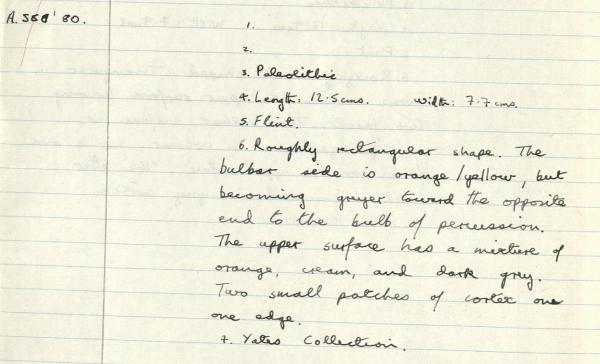 A.568'80.
1.
2.
3. Paleolithic
4. Length: 12.5cms. Width: 7.7cms.
5. Flint.
6. Roughly rectangular shape. The
bulbar side is orange/yellow, but
becoming greyer toward the opposite
end to the bulb of percussion.
The upper surface has a mixture of
orange, cream, and dark grey.
Two small patches of cortex one
one edge.
7. Yates Collection.